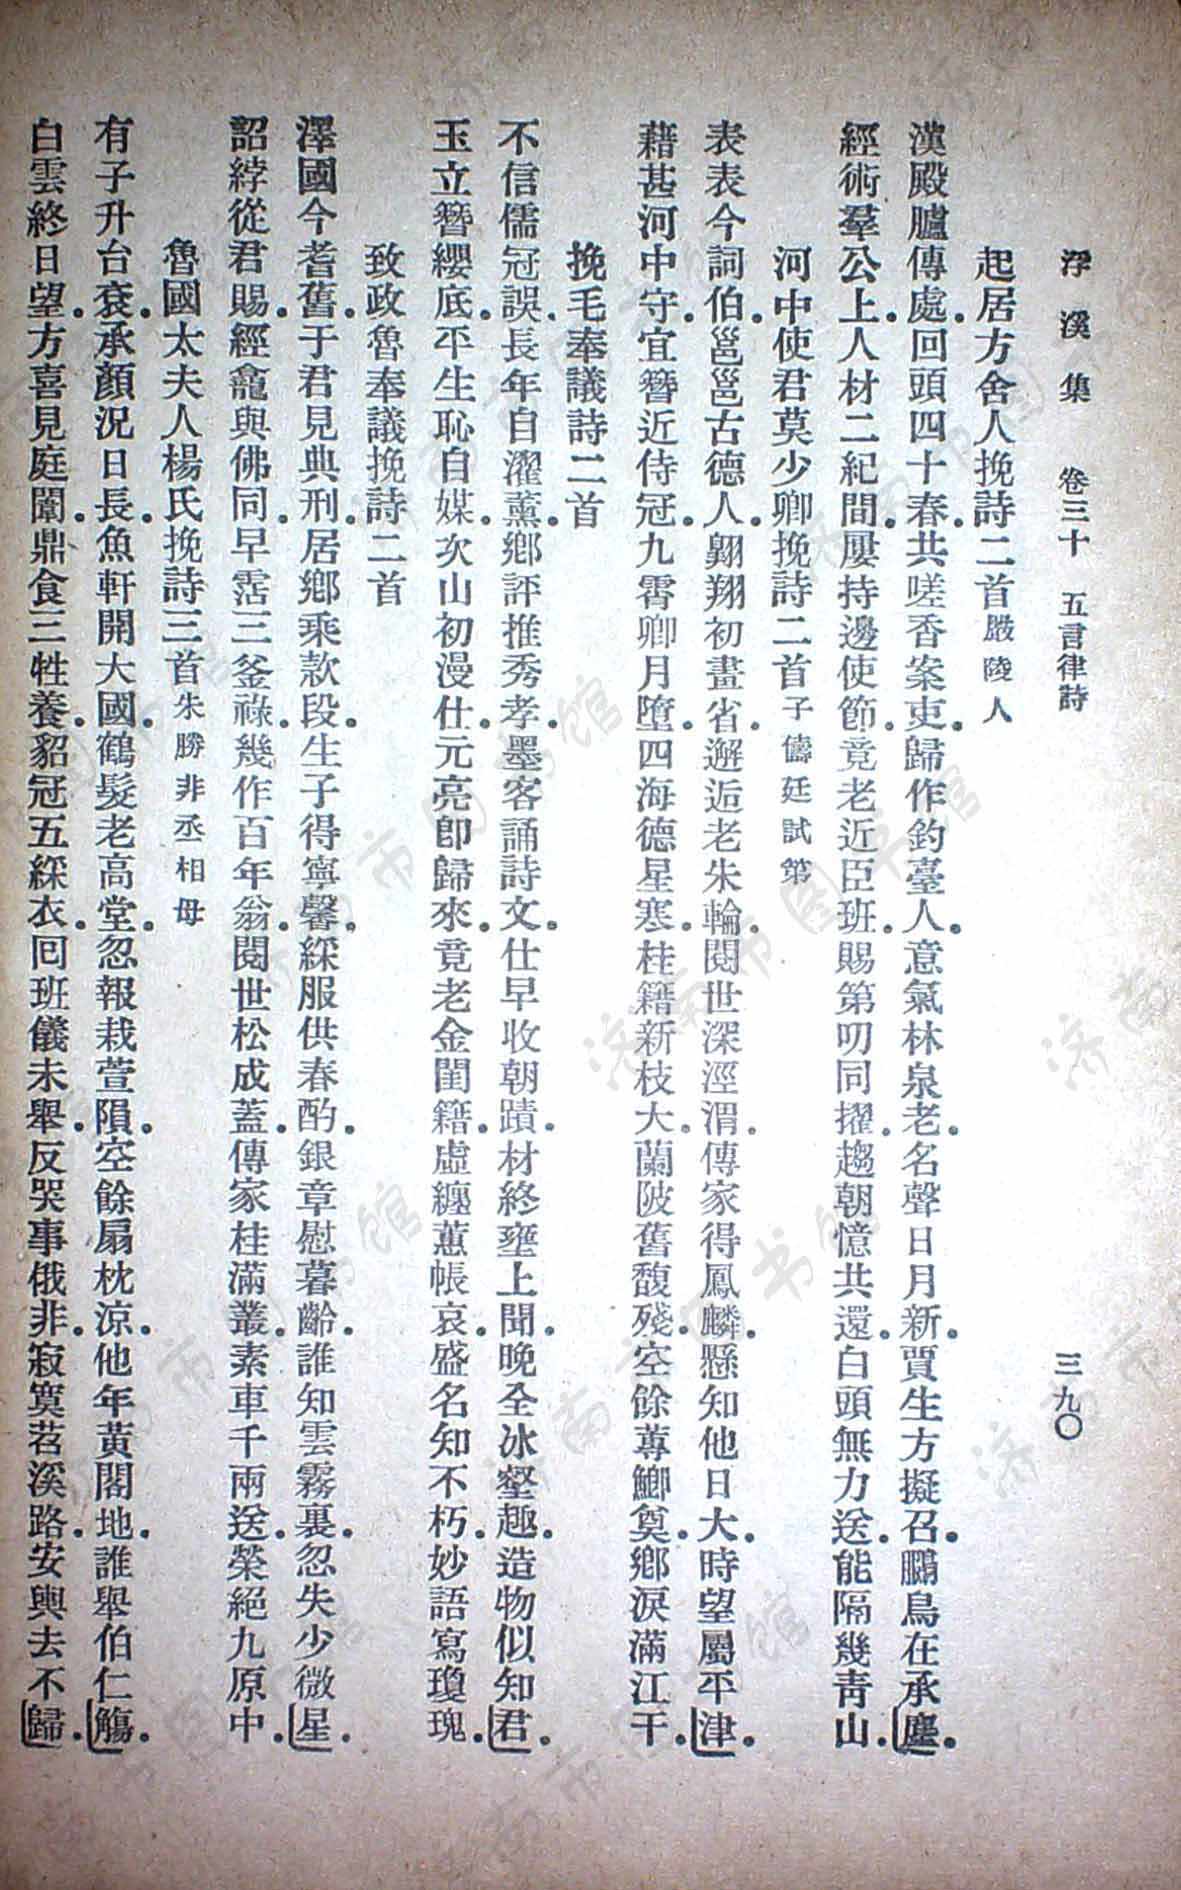 浮溪集　卷三十　五言律詩　三九〇
起居方舍人挽詩二首嚴陵人
漢殿臚傳處。回頭四十春。共嗟香案吏。歸作釣臺人。意氣林泉老。名聲日月新。賈生方擬召。鵩鳥在承塵。
經術羣公上。人材二紀間。屢持邊使節。竟老近臣班。賜第叨同擢。趨朝憶共還。白頭無力送。能隔幾青山。
河中使君莫少卿挽詩二首子儔廷試第
表表今詞伯。邕邕古德人。翺翔初畫省。邂逅老朱輪。閱世深涇渭。傳家得鳳麟。懸知他日大。時望屬平津。
藉甚河中守。宜簪近侍冠。九霄卿月墮。四海德星寒。桂籍新枝大。蘭陂舊馥殘。空餘蓴鯽奠。鄉淚滿江干。
挽毛奉議詩二首
不信儒冠誤。長年自濯薰。鄉評推秀孝。墨客誦詩文。仕早收朝蹟。材終壅上聞。晚全冰壑趣。造物似知君。
玉立簪纓底。平生恥自媒。次山初漫仕。元亮卽歸來。竟老金閨籍。虛纏蕙帳哀。盛名知不朽。妙語寫瓊瑰。
致政魯奉議挽詩二首
澤國今耆舊。于君見典刑。居鄉乘款段。生子得寧馨。綵服供春酌。銀章慰暮齡。誰知雲霧裏。忽失少微星。
詔綍從君賜。經龕與佛同。早霑三釜祿。幾作百年翁。閱世松成蓋。傳家桂滿叢。素車千兩送。榮絕九原中。
魯國太夫人楊氏挽詩三首朱勝非丞相母
有子升台袞。承顏況日長。魚軒開大國。鶴髮老高堂。忽報栽萱隕。空餘扇枕涼。他年黃閣地。誰舉伯仁觴。
白雲終日望。方喜見庭闈。鼎食三牲養。貂冠五綵衣。回班儀未舉。反哭事俄非。寂寞苕溪路。安輿去不歸。